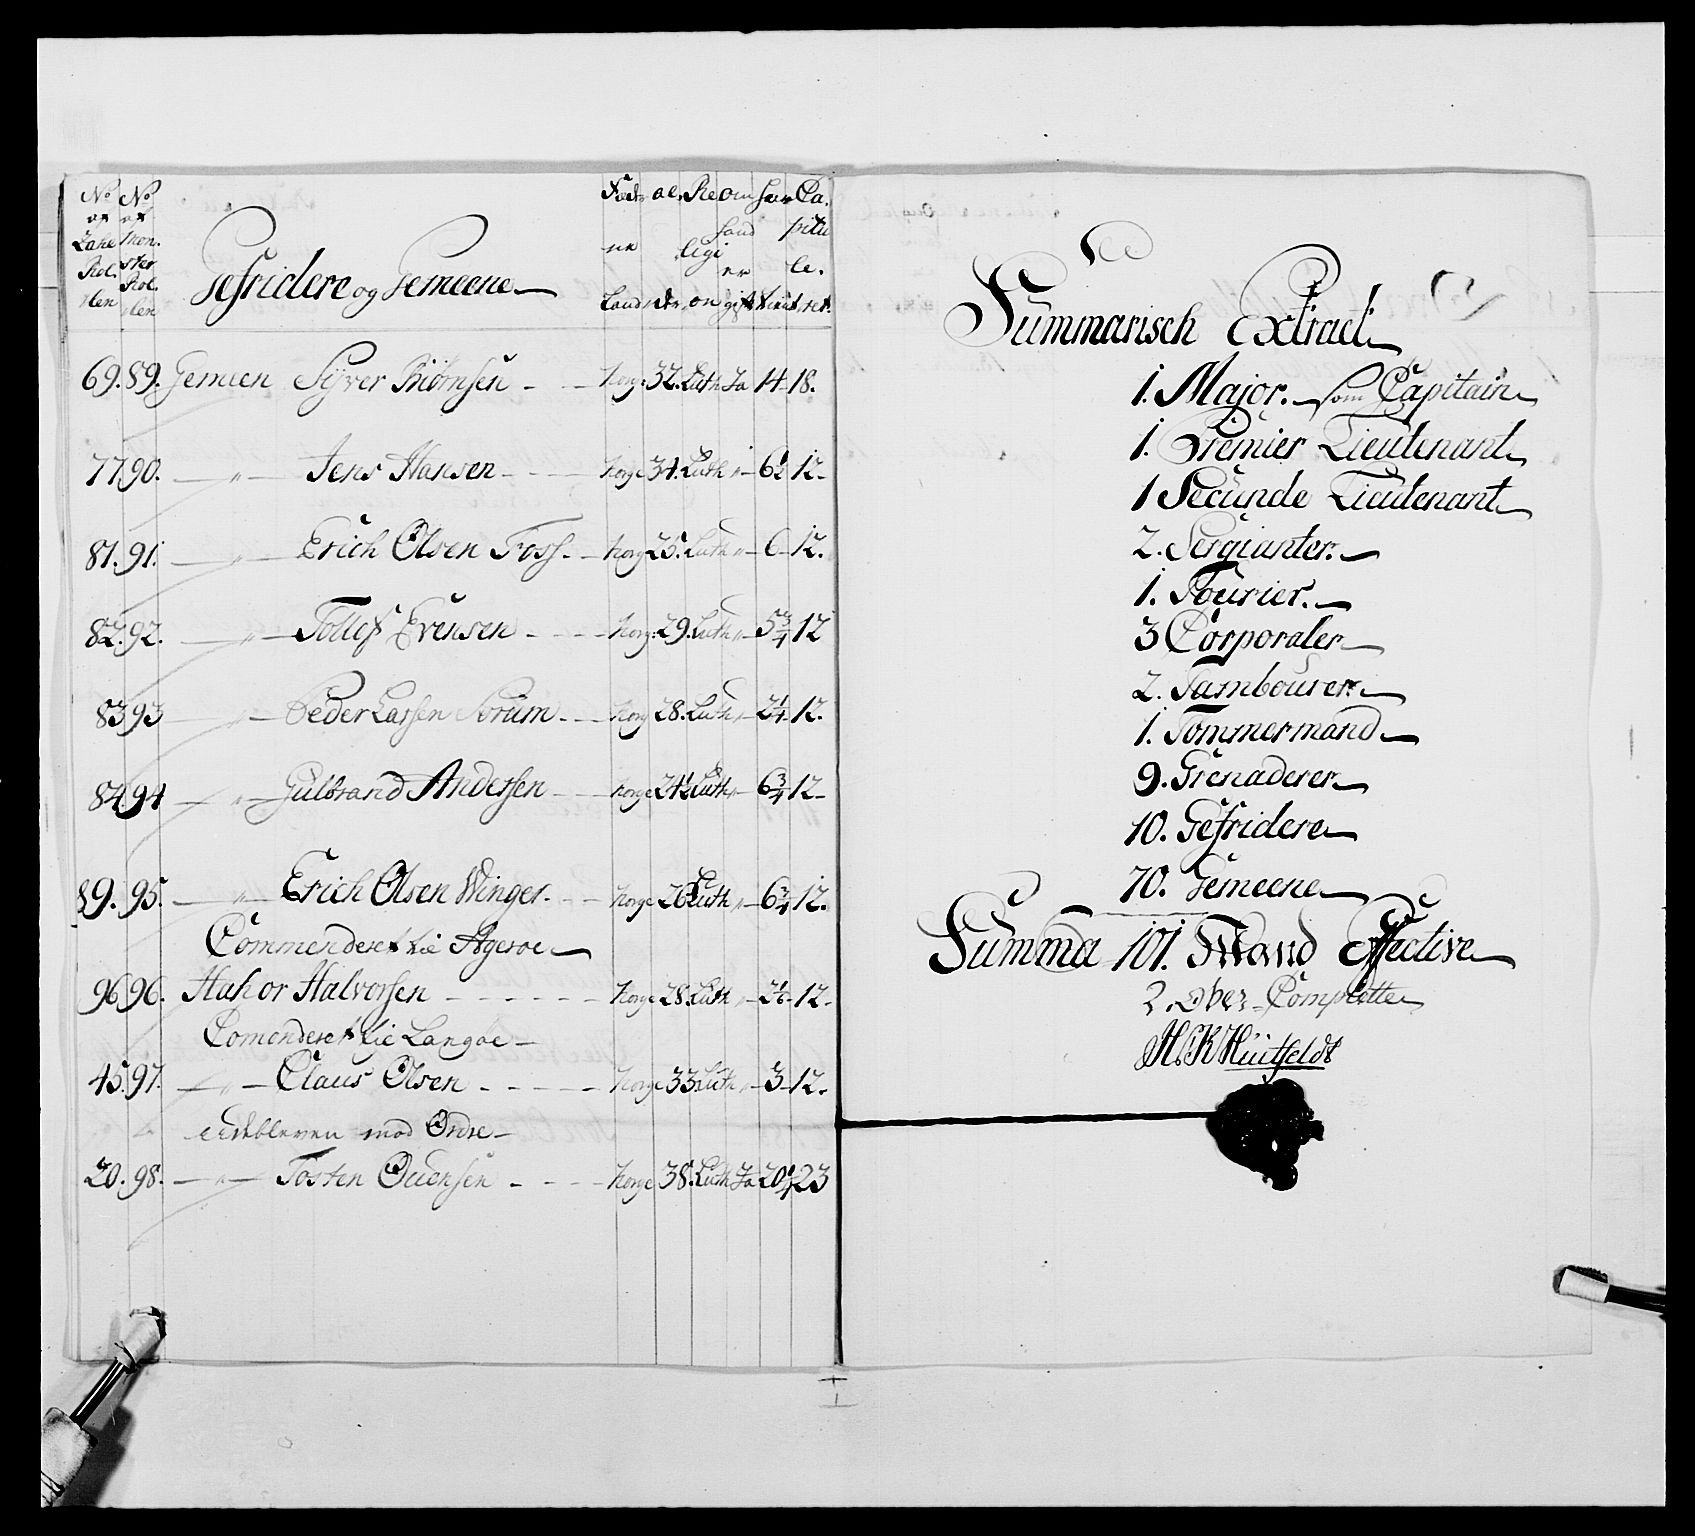 No No
af af
Zahl Mon.
Rol. ster
len Rol.
len
Gefridere og Gemeene
Føde ne Land
Al der
Re ligi on
Om hand er gift
Ca pitu le ret.
69. 89. Gemeen Syver Biörnsen - - Norge 32. Luth Ja 14 18.
77 90. — " — Jens Hansen - - - Norge 34. Luth " 6½ 12.
81. 91. — " — Erich Olsen Foss. - Norge 25. Luth " 6 12.
82. 92. — " — Tollef Evensen - - - Norge 29. Luth " 5¾ 12
83 93 — " — Peder Larsen Sorum - - Norge 28. Luth " 2¼ 12.
84 94 — " — Gulbrand Andersen - - Norge 24½ Luth " 6¾ 12
89. 95. — " — Erich Olsen Winger. - - Norge 26 Luth " 6¾ 12.
Commenderet til Ageroe
96 96. Hahor Halvorsen - - - - Norge 28. Luth " 12
Comenderet til Langöe
45. 97. — " — Claus Olsen - - - - - Norge 33 Luth " 3 12.
udebleven mod Ordre
20. 98. — " — Tosten Ouensen - - - Norge 38. Luth Ja 20¼ 23
Summarisch Extract
1. Major. som Capitain
1. Premier Lieutenant
1 Secunde Lieutenant
2. Sergianter.
1. Fourier.
3 Corporaler
2. Tambourer.
1. Tömmermand
9. Grenaderer
10. Gefridere
70. Gemeene
Summa 101. Mand Effective
2. Over Complette
H. K Hüitfeldt